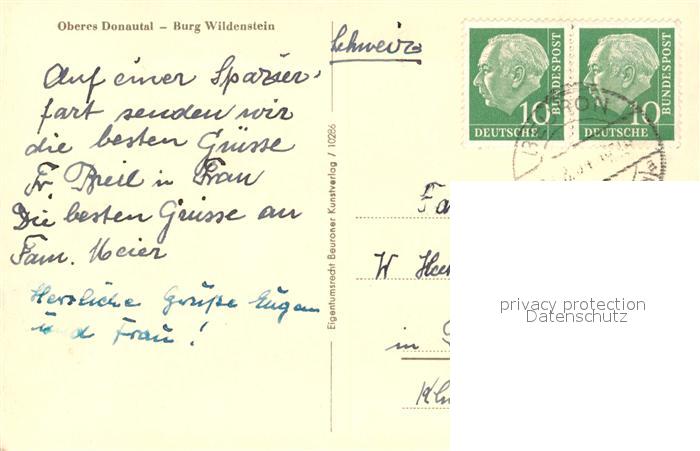 Oberes Donautal – Burg Wildenstein
Auf einer Spazier-
fart senden wir
die besten Grüsse
Fr. Breil u Frau
Die besten Grüsse an
Fam. Meier
Herzliche Grüße Eugen
und Frau!
Eigentumsrecht Beuroner Kunstverlag / 10286
Schweiz
10 DEUTSCHE BUNDESPOST
10 DEUTSCHE BUNDESPOST
Fa
W
in
privacy protection
Datenschutz